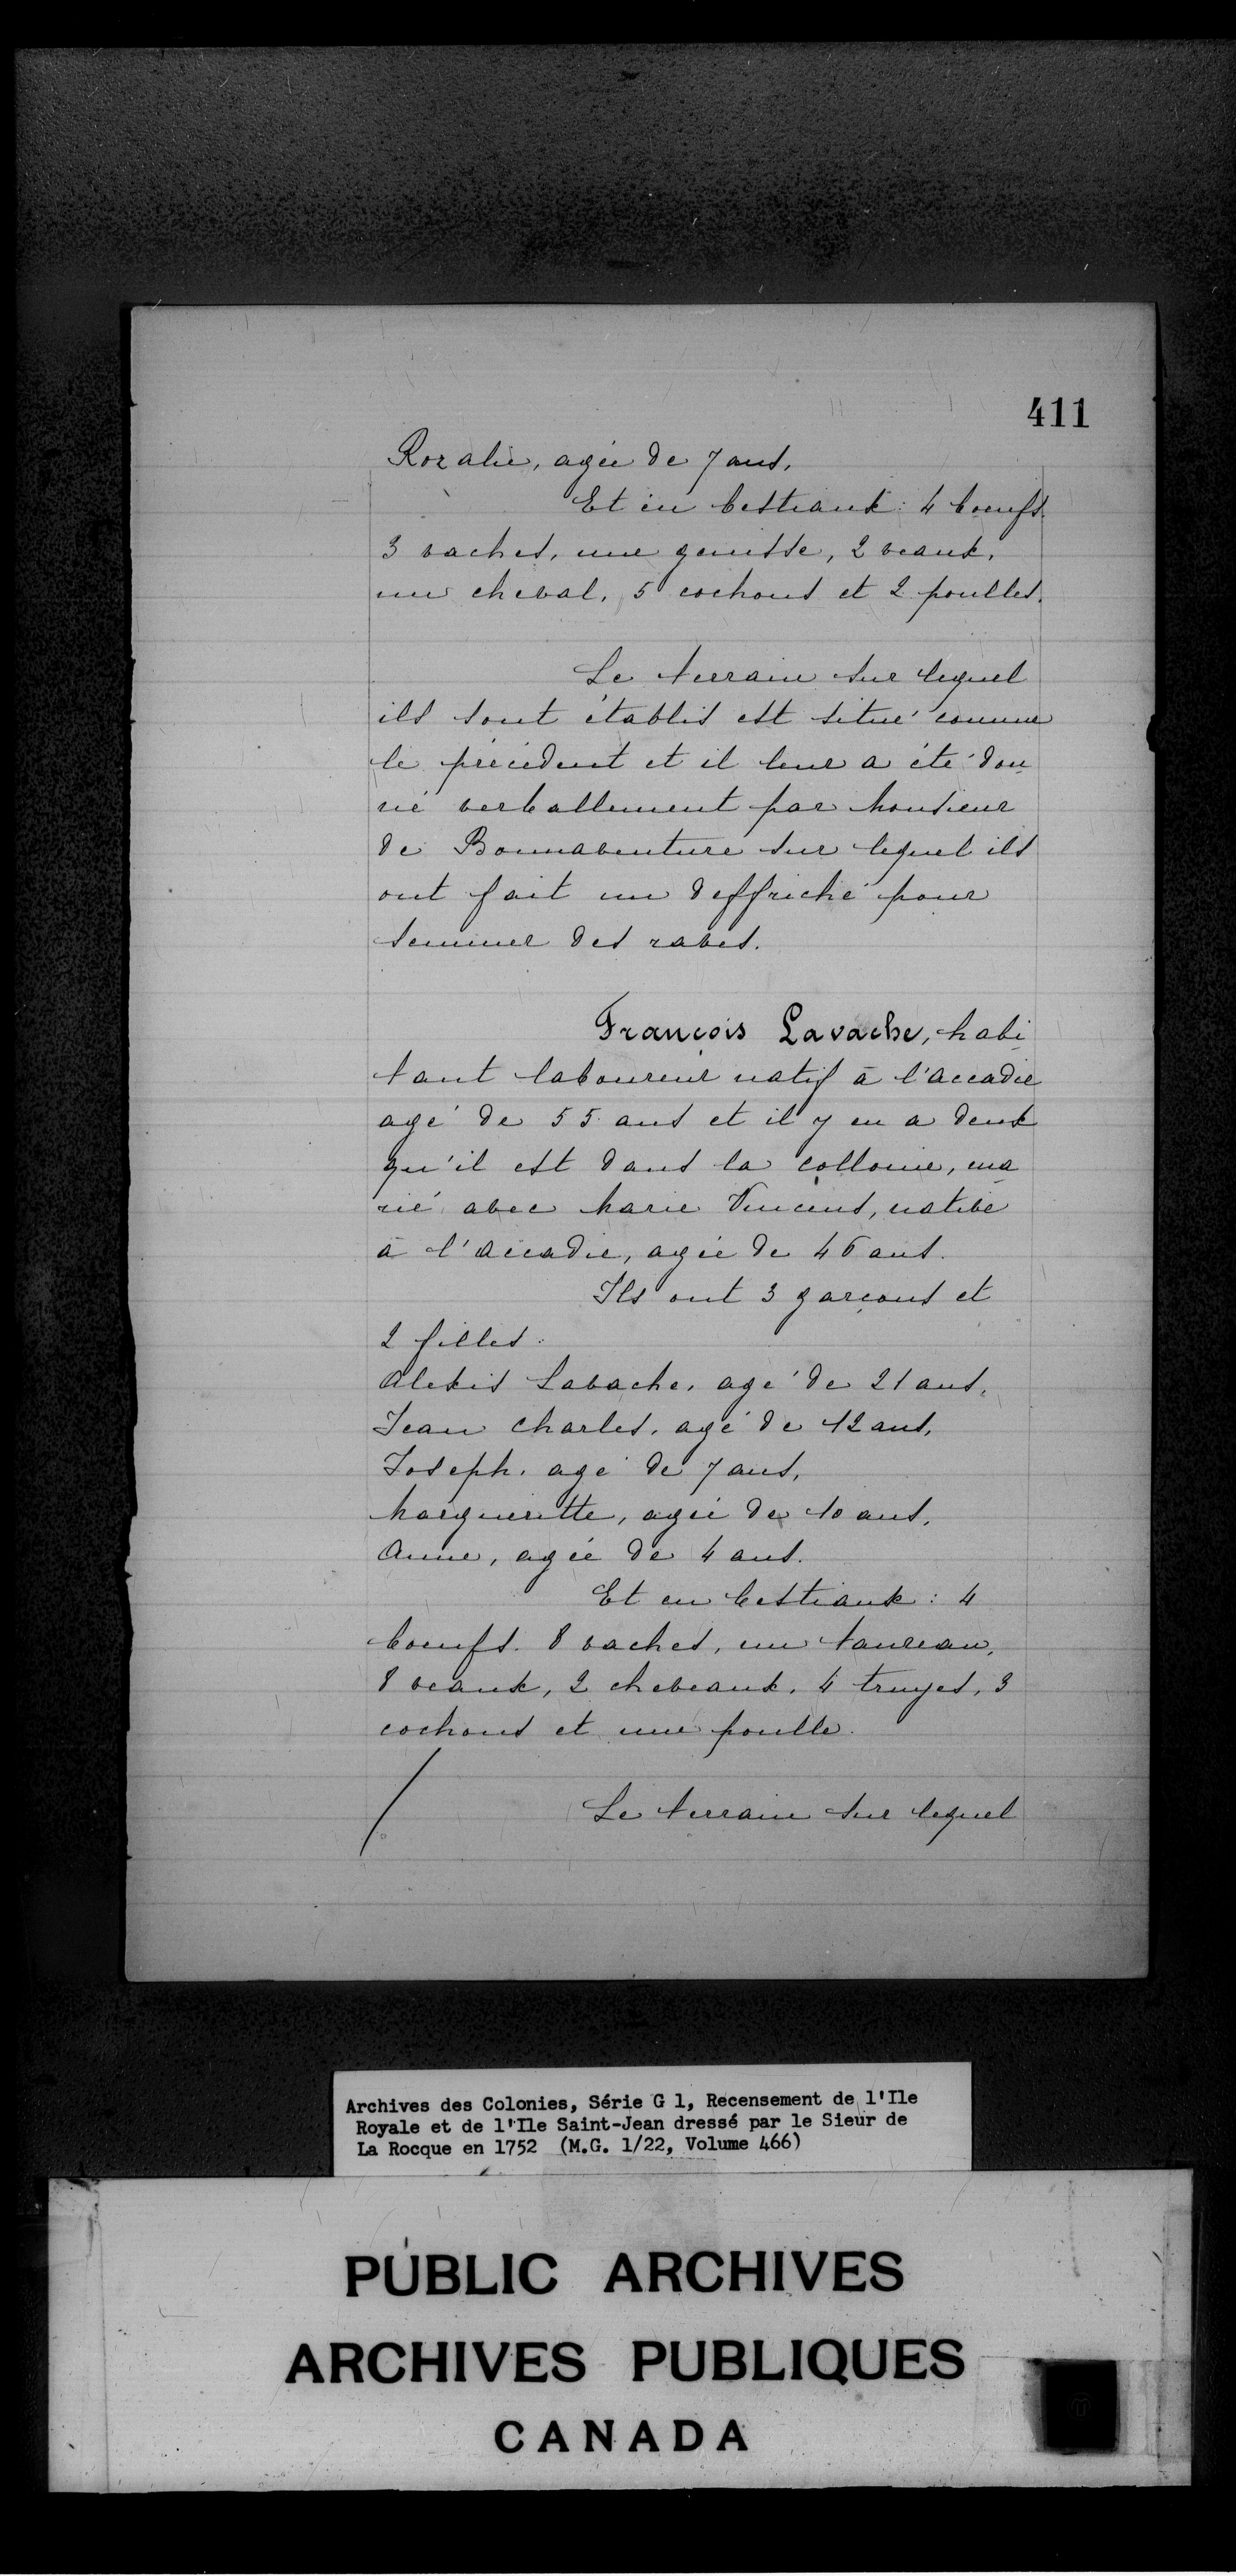 411
Rozalie, agée de 7 ans,
Et en bestiaux : 4 boeufs.
3 vaches, une genisse, 2 veaux,
un cheval, 5 cochons et 2 poulles.
Le terrain sur lequel
ils sont établis est situé comme
le précédent et il leur a été don
né verballement par Monsieur
de Bonnaventure sur lequel ils
ont fait un deffriché pour
semmer des raves.
François Lavache, habi
tant laboureur natif à l'accadie
agé de 55 ans et il y en a deux
qu'il est dans la collonie, ma
rié avec Marie Vincent, native
à l'accadie, agée de 46 ans.
Ils ont 3 garçons et
2 filles :
Alexis Lavache, agé de 21 ans,
Jean Charles, agé de 12 ans,
Joseph, agé de 7 ans,
Marguerитte, agée de 10 ans,
Anne, agée de 4 ans.
Et en bestiaux : 4
boeufs. 8 vaches, un taureau,
8 veaux, 2 cheveaux, 4 truyes, 3
cochons et une poulle.
Le terrain sur lequel
Archives des Colonies, Série G 1, Recensement de l'Ile
Royale et de l'Ile Saint-Jean dressé par le Sieur de
La Rocque en 1752 (M.G. 1/22, Volume 466)
PUBLIC ARCHIVES
ARCHIVES PUBLIQUES
CANADA